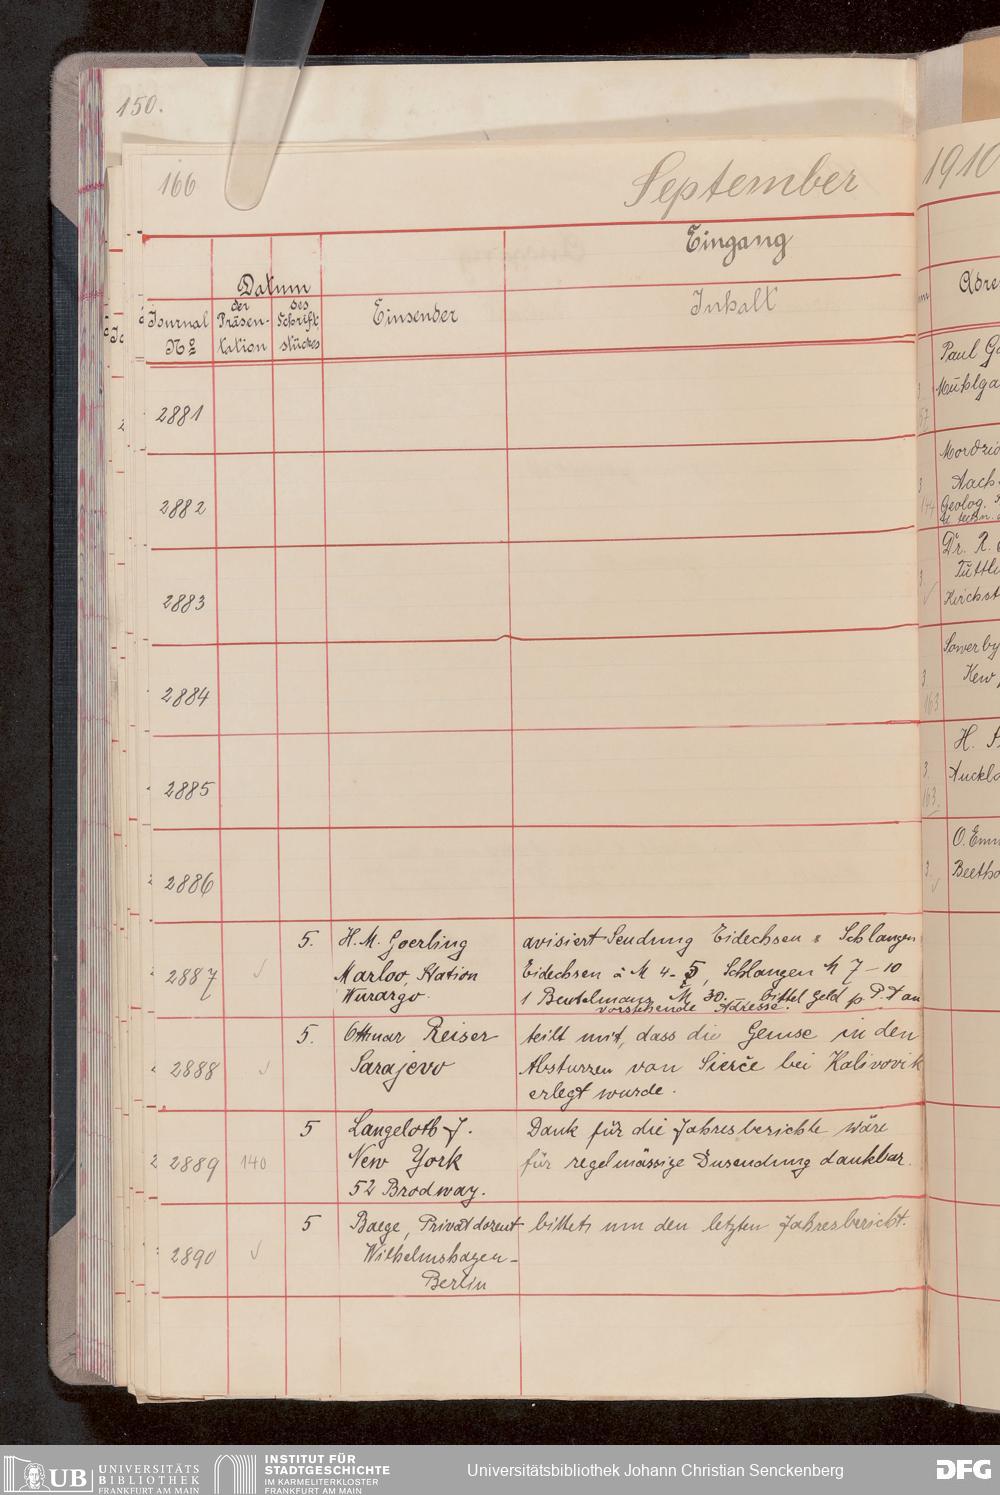 150.
166
September
1910
Eingang
Datum
Journal
No
der
Präsen-
tation
des
Schrift
stückes
Einsender
Inhalt
2881
2882
2883
2884
2885
2886
2887 5. H. M. Goerling avisiert Sendung Eidechsen & Schlangen
Marloo, Station Eidechsen à M 4-5, Schlangen M 7-10
Wurargo. 1 Beutelmaus M 30. bittet Geld p P.A an
vorstehende Adresse.
2888 5. Othmar Reiser teilt mit, dass die Gemse in den
Sarajevo Absturzen von bei Kalivovik
erlegt wurde.
2889 140 5 Langeloth J. Dank für die Jahresberichte wäre
New York für regelmässige Zusendung dankbar.
52 Brodway.
2890 5 Baege, Privatdozent bittet um den letzten Jahresbericht.
Wilhelmshagen-
Berlin
Paul
Mühlga
Aach
Geolog.
Dr. R.
Tuttli
Kirchst
Sowerby
Kew
H.
Auckla
Beetho
UB
UNIVERSITÄTS
BIBLIOTHEK
FRANKFURT AM MAIN
INSTITUT FÜR
STADTGESCHICHTE
IM KARMELITERKLOSTER
FRANKFURT AM MAIN
Universitätsbibliothek Johann Christian Senckenberg
DFG